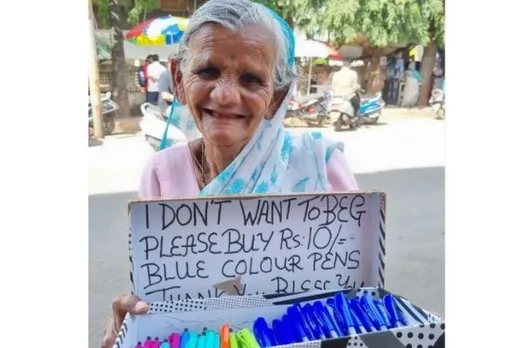 I DON'T WANT TO BEG
PLEASE BUY RS: 10/=
BLUE COLOUR PENS
THANK YOU BLESS YOU